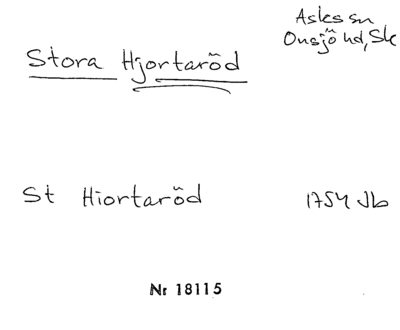 Askes sn
Onsjö hd, Sk
Stora Hjortaröd
St Hiortaröd 1754 Jb
Nr 18115